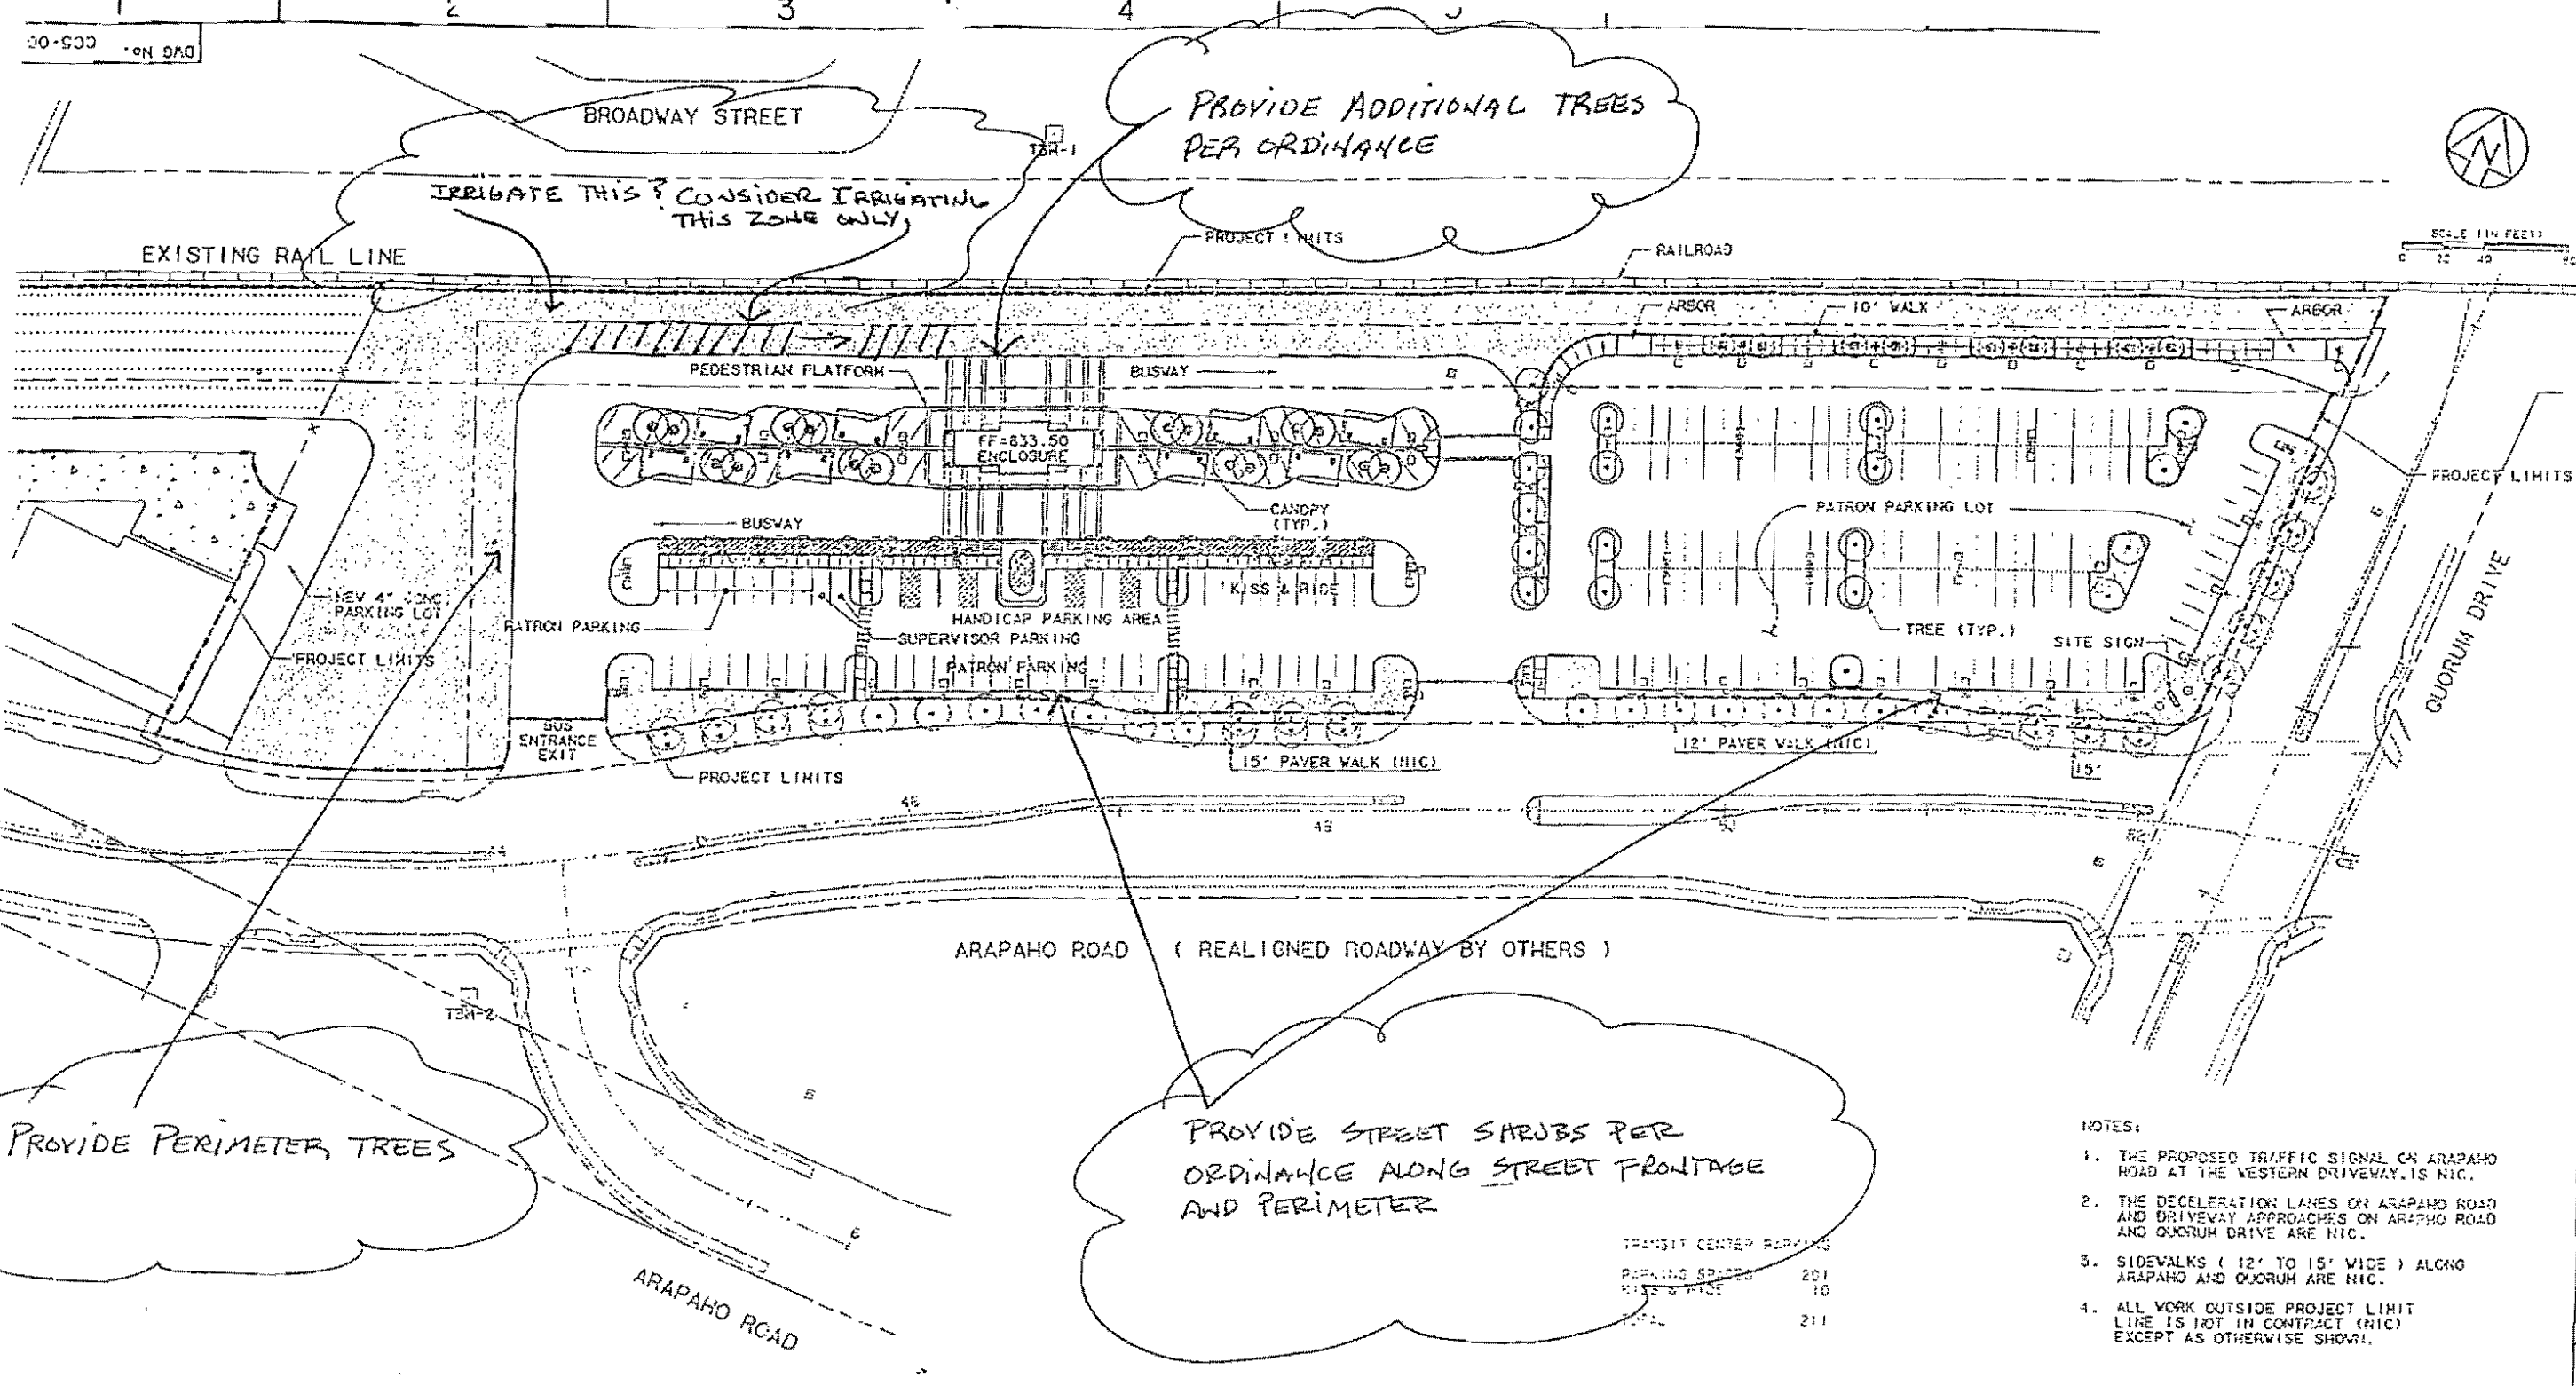 2
3
4
DWG No. CCS-00
BROADWAY STREET
TBM-1
PROVIDE ADDITIONAL TREES
PER ORDINANCE
IRRIGATE THIS? CONSIDER IRRIGATING
THIS ZONE ONLY
EXISTING RAIL LINE
PROJECT LIMITS
RAILROAD
SCALE (IN FEET)
0 20 40 80
ARBOR
10' WALK
ARBOR
PEDESTRIAN PLATFORM
BUSWAY
FF=633.50
ENCLOSURE
CANOPY
(TYP.)
BUSWAY
PATRON PARKING LOT
PROJECT LIMITS
NEW 4" CONC
PARKING LOT
KISS & RIDE
PATRON PARKING
HANDICAP PARKING AREA
SUPERVISOR PARKING
TREE (TYP.)
SITE SIGN
PROJECT LIMITS
PATRON PARKING
QUORUM DRIVE
BUS
ENTRANCE
EXIT
PROJECT LIMITS
15' PAVER WALK (NIC)
12' PAVER WALK (NIC)
15'
46
48
50
52
ARAPAHO ROAD ( REALIGNED ROADWAY BY OTHERS )
TBM-2
PROVIDE PERIMETER TREES
PROVIDE STREET SHRUBS PER
ORDINANCE ALONG STREET FRONTAGE
AND PERIMETER
ARAPAHO ROAD
TRANSIT CENTER PARKING
PARKING SPACES 201
KISS & RIDE 10
TOTAL 211
NOTES:
1. THE PROPOSED TRAFFIC SIGNAL ON ARAPAHO
ROAD AT THE WESTERN DRIVEWAY.IS NIC.
2. THE DECELERATION LANES ON ARAPAHO ROAD
AND DRIVEWAY APPROACHES ON ARAPHO ROAD
AND QUORUM DRIVE ARE NIC.
3. SIDEWALKS ( 12' TO 15' WIDE ) ALONG
ARAPAHO AND QUORUM ARE NIC.
4. ALL WORK OUTSIDE PROJECT LIMIT
LINE IS NOT IN CONTRACT (NIC)
EXCEPT AS OTHERWISE SHOWN.